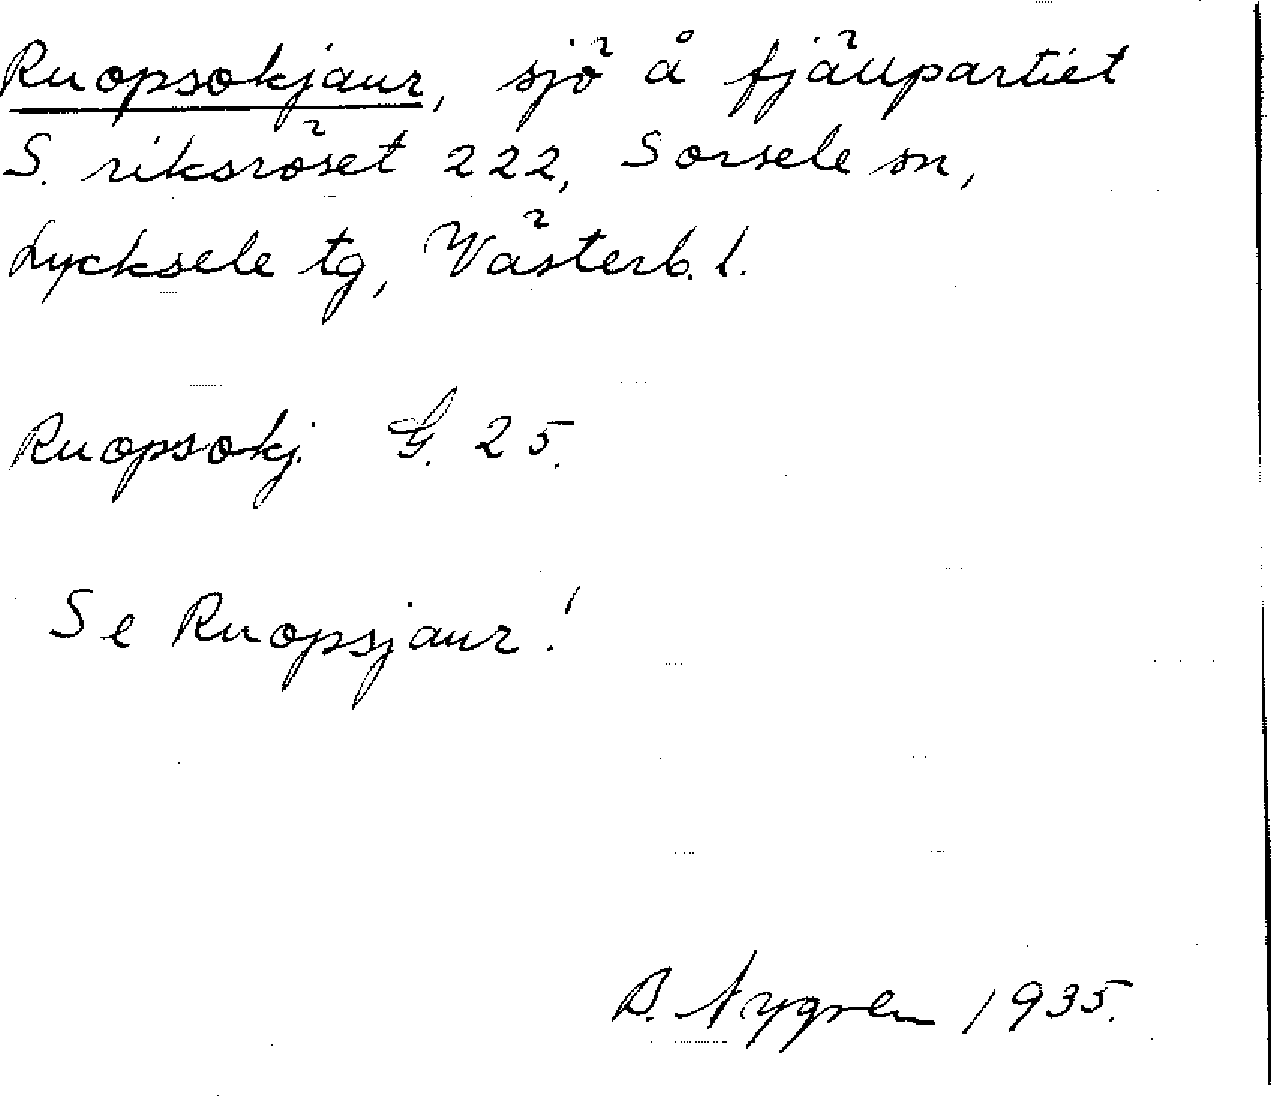 Ruopsokjaur, sjö å fjällpartiet
S. riksröset 222, Sorsele sn,
Lycksele tg, Västerb. l.
Ruopsokj. G. 25.
Se Ruopsjaur!
B. Nygren 1935.